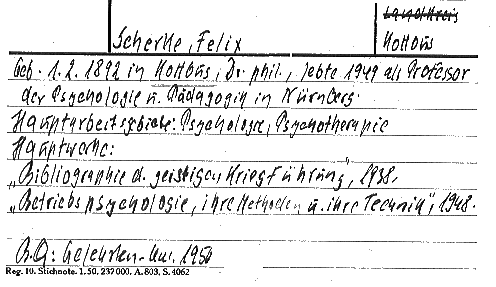 Landkreis
Scherke, Felix
Kottbus
Geb. 1.2.1892 in Kottbus, Dr. phil., lebte 1949 als Professor
der Psychologie u. Pädagogik in Nürnberg.
Hauptarbeitsgebiete: Psychologie, Psychotherapie
Hauptwerke:
„Bibliographie d. geistigen Kriegführung", 1938.
„Betriebspsychologie, ihre Methoden u. ihre Technik", 1948.
B.Q: Gelehrten-Kal. 1950
Reg. 10. Stichnote. 1. 50. 237 000. A. 803, S. 4062